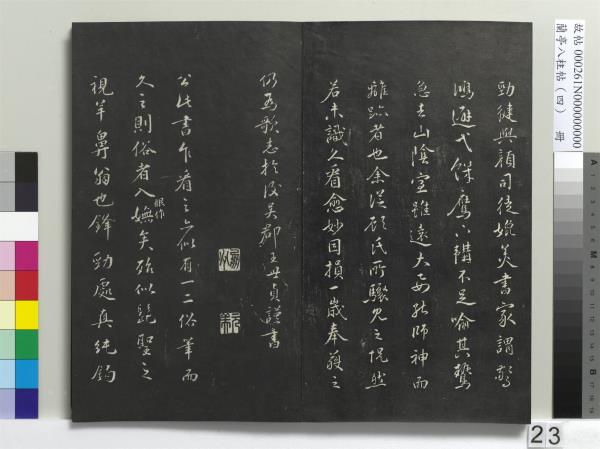 故帖 000261N000000000
蘭亭八柱帖（四） 冊
勁健與顏司徒媲美書家謂驚
鴻避弋餓鷹下韝不足喻其鷙
急去山陰室雖遠大要能師神而
離跡者也余從顧氏所驟見之恍然
若未識久看愈妙因損一歲奉獲之
仍為歌志於後吳郡王世貞謹書
公此書乍看之亦似有一二俗筆而
久之則俗者入眼作嫵矣殆似髭聖之
視羊鼻翁也鋒勁處真純鉤
23